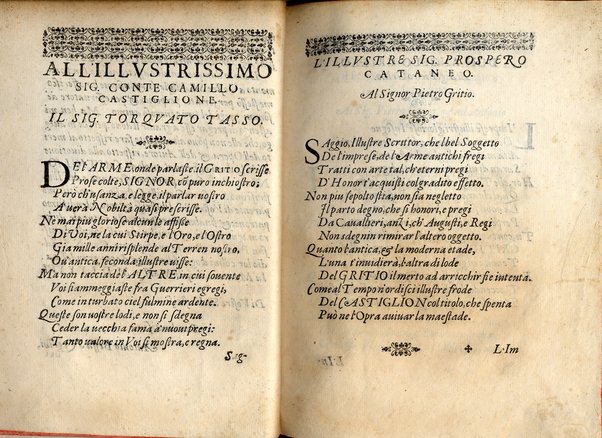 ALL'ILLVSTRISSIMO
SIG. CONTE CAMILLO
CASTIGLIONE.
IL SIG. TORQVATO TASSO.
DEL'ARME, onde parlaste, il GRITIO scrisse
Prose colte, SIGNOR, cō puro inchiostro;
Però ch'usanza, e legge, il parlar uostro
A uera Nobiltà quasi prescrisse.
Nè mai più gloriose alcun le affisse
Di Voi, ne la cui Stirpe, e l'Oro, e l'Ostro
Gia mille anni risplende al Terren nostro,
Ou'antica, secondo illustre uisse:
Ma non taccia de l'ALTRE, in cui souente
Voi siammeggiaste fra Guerrieri egregi,
Come in turbato ciel fulmine ardente.
Queste son uostre lodi, e non si sdegna
Ceder la vecchia fama à nuoui pregi:
Tanto ualore in Voi si mostra, e regna.
Sag-
L'ILLVSTRE SIG. PROSPERO
CATANEO.
Al Signor Pietro Gritio.
SAggio, Illustre Scrittor, che'l bel Soggetto
De l'imprese, de l'Arme antichi fregi
Tratti con arte tal, ch'eterni pregi
D'Honor t'acquisti col gradito effetto.
Non piu sepolto stia, non sia negletto
Il parto degno, che si honori, e pregi
Da Cauallieri, anzi, ch'Augusti, e Regi
Non sdegnin rimirar l'altero oggetto.
Quanto l'antica, & la moderna etade,
L'una t'inuidierà, l'altra di lode
Del GRITIO il merto ad arricchir sie intenta.
Come al Tempo n'ordisci illustre frode
Del CASTIGLION col titolo, che spenta
Può ne l'Opra auiuar la maestade.
L'Im